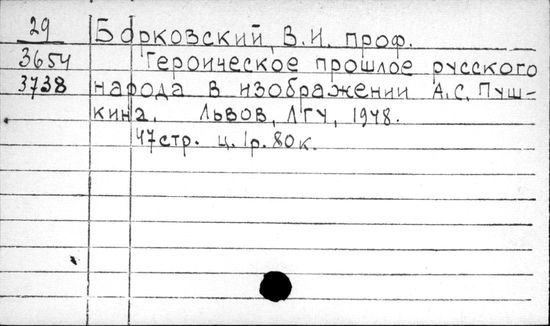 29 Борковский, В.И. проф.
3654 Героическое прошлое русского
3738 народа в изображении А.С. Пуш-
кина. Львов, ЛГУ, 1948.
47 стр. ц. 1р. 80к.